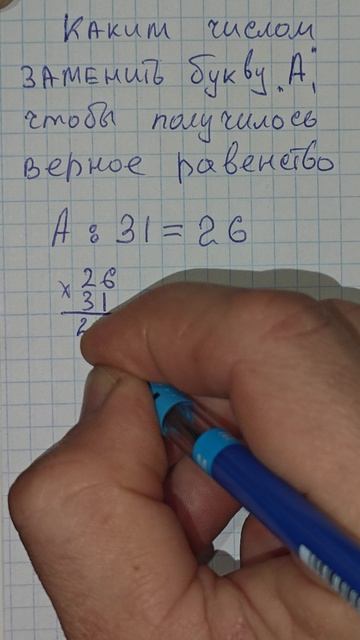 Каким числом
заменить букву „А",
чтобы получилось
верное равенство
А : 31 = 26
× 26
31
2